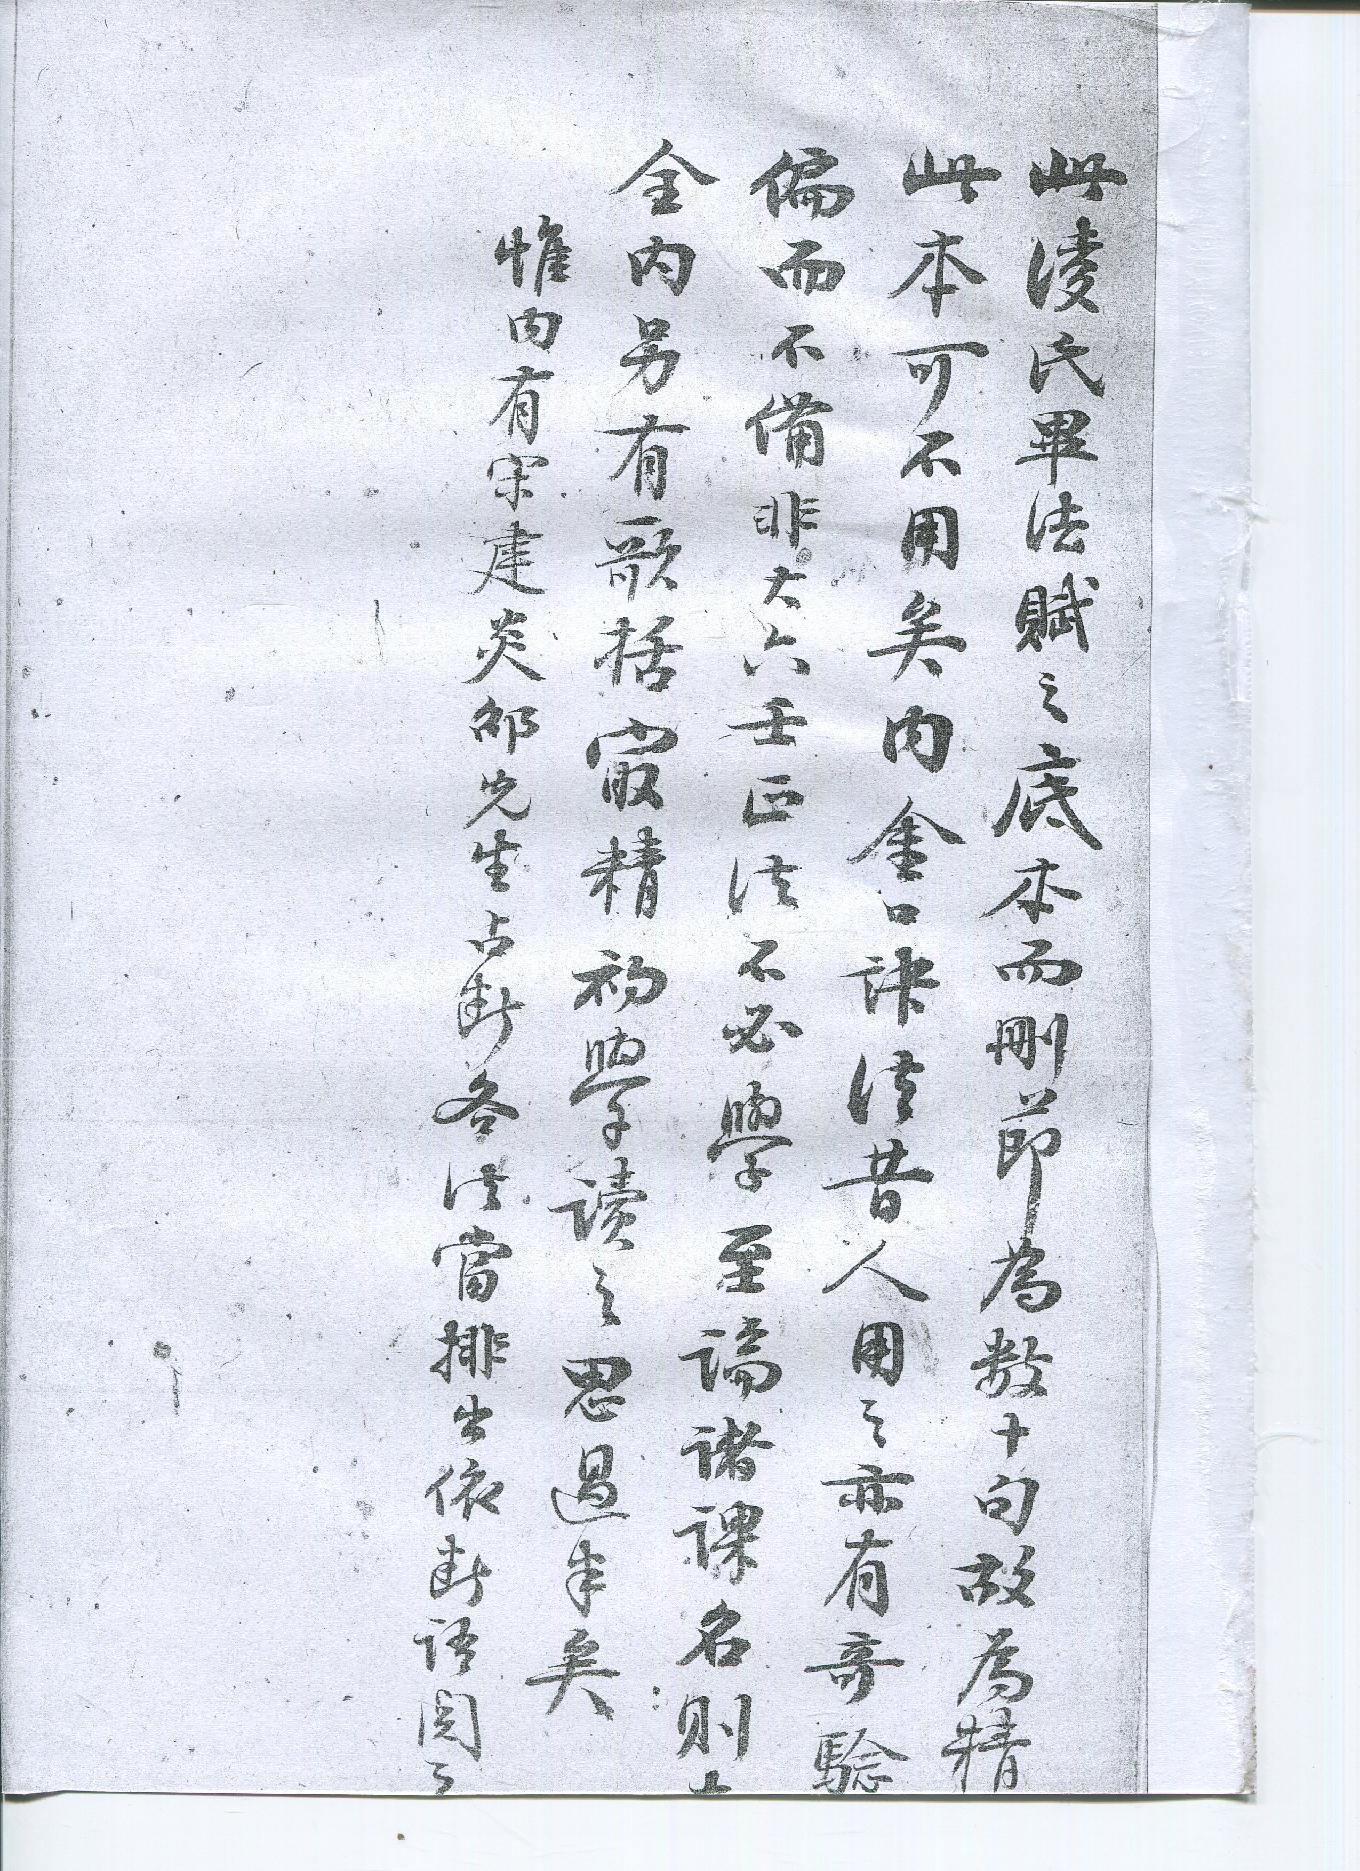 此淩氏畢法賦之底本而刪節為数十句故為精
此本可不用矣内金口訣法昔人用之亦有奇驗
偏而不備非大六壬正法不必學至論諸課名則
全内另有歌括最精初學讀之思過半矣
惟内有宋建炎邵先生占断各法當排出依断語閱